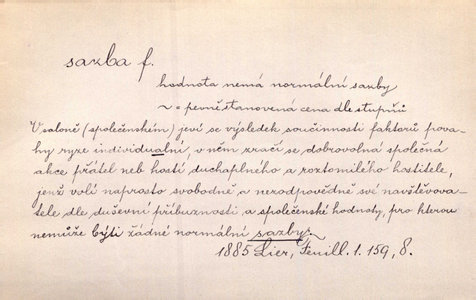 sazba f.
hodnota nemá normální sazby
~ = pevně stanovená cena dle stupňů
V saloně (společenském) jeví se výsledek součinnosti faktorů pova-
hy ryze individualní, v něm zračí se dobrovolná společná
akce přátel neb hostí duchaplného a roztomilého hostitele,
jenž volí naprosto svobodně a nezodpovědně své navštěvova-
tele dle duševní příbuznosti a společenské hodnoty, pro kterou
nemůže býti žádné normální sazby.
1885 Lier, Feuill. 1. 159, 8.